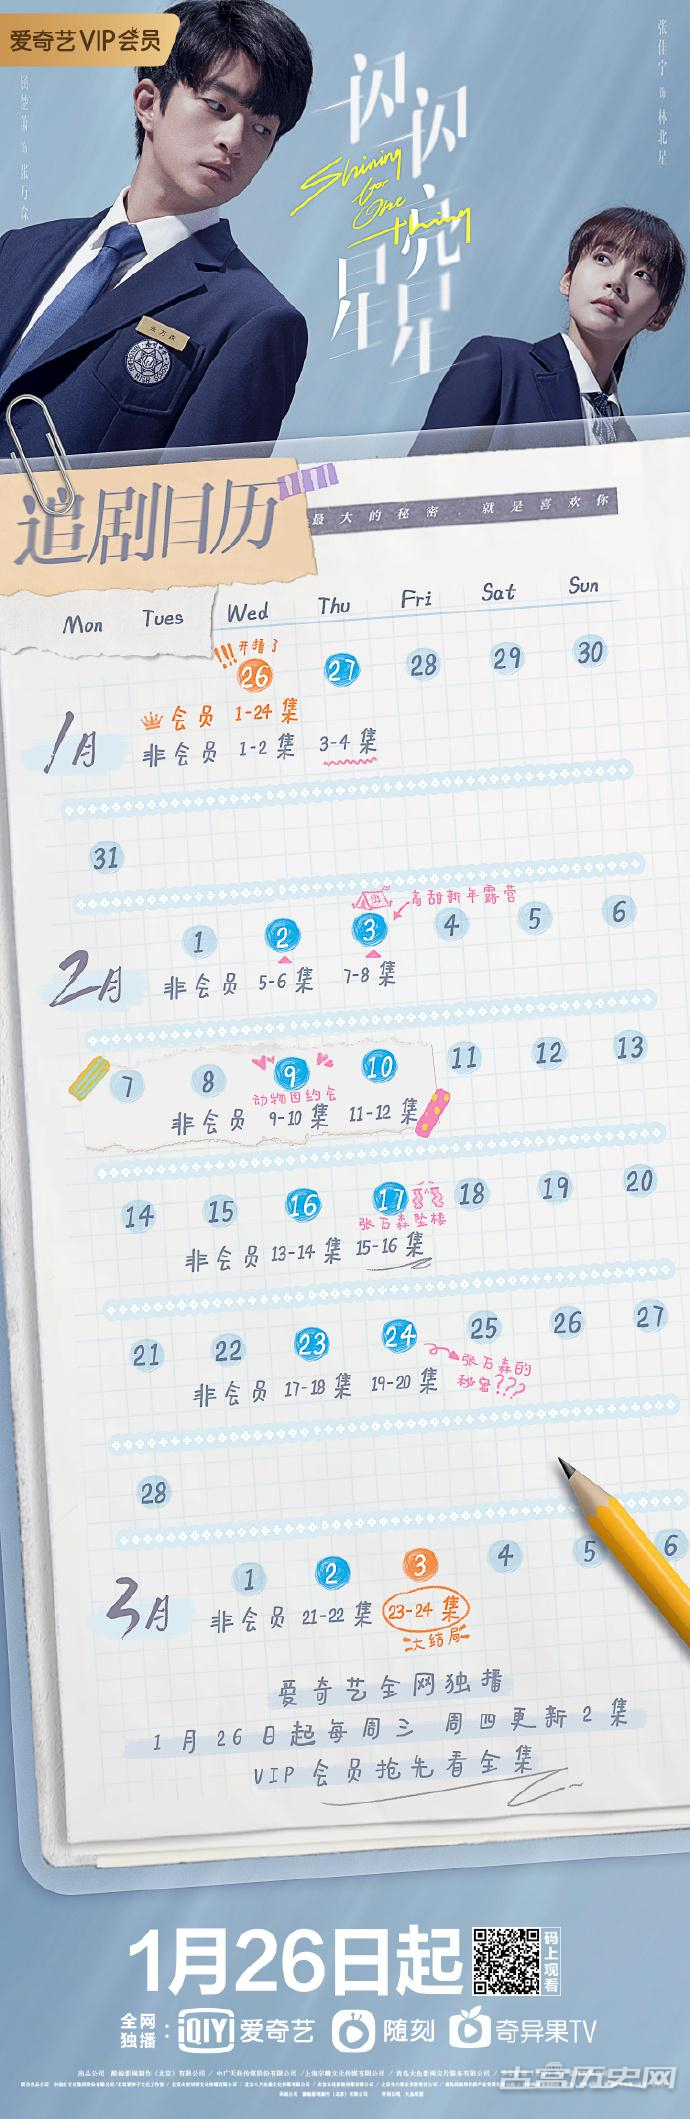 爱奇艺VIP会员
张佳宁 饰 林北星
屈楚萧 饰 张万森
闪闪亮星星
Shining For One Thing
张万森
追剧日历
最大的秘密，就是喜欢你
Mon Tues Wed Thu Fri Sat Sun
!!!开播了
26 27 28 29 30
1月
会员 1-24 集
非会员 1-2 集 3-4 集
31
高甜新年露营
1 2 3 4 5 6
2月
非会员 5-6 集 7-8 集
7 8 9 10 11 12 13
动物园约会
非会员 9-10 集 11-12 集
14 15 16 17 18 19 20
张万森坠楼
非会员 13-14 集 15-16 集
21 22 23 24 25 26 27
张万森的
秘密???
非会员 17-18 集 19-20 集
28
1 2 3 4 5 6
3月
非会员 21-22 集 23-24 集
大结局
爱奇艺全网独播
1月26日起每周三 周四更新2集
VIP会员抢先看全集
1月26日起
码上观看
全网独播：
iQIYI 爱奇艺 随刻 奇异果TV
古宫历史网